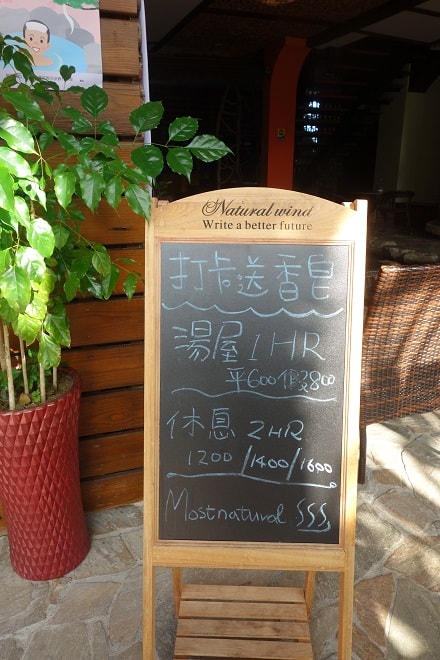 Natural wind
Write a better future
打卡送香皂
湯屋 1HR
平600 假800
休息 2HR
1200/1400/1600
Mostnatural